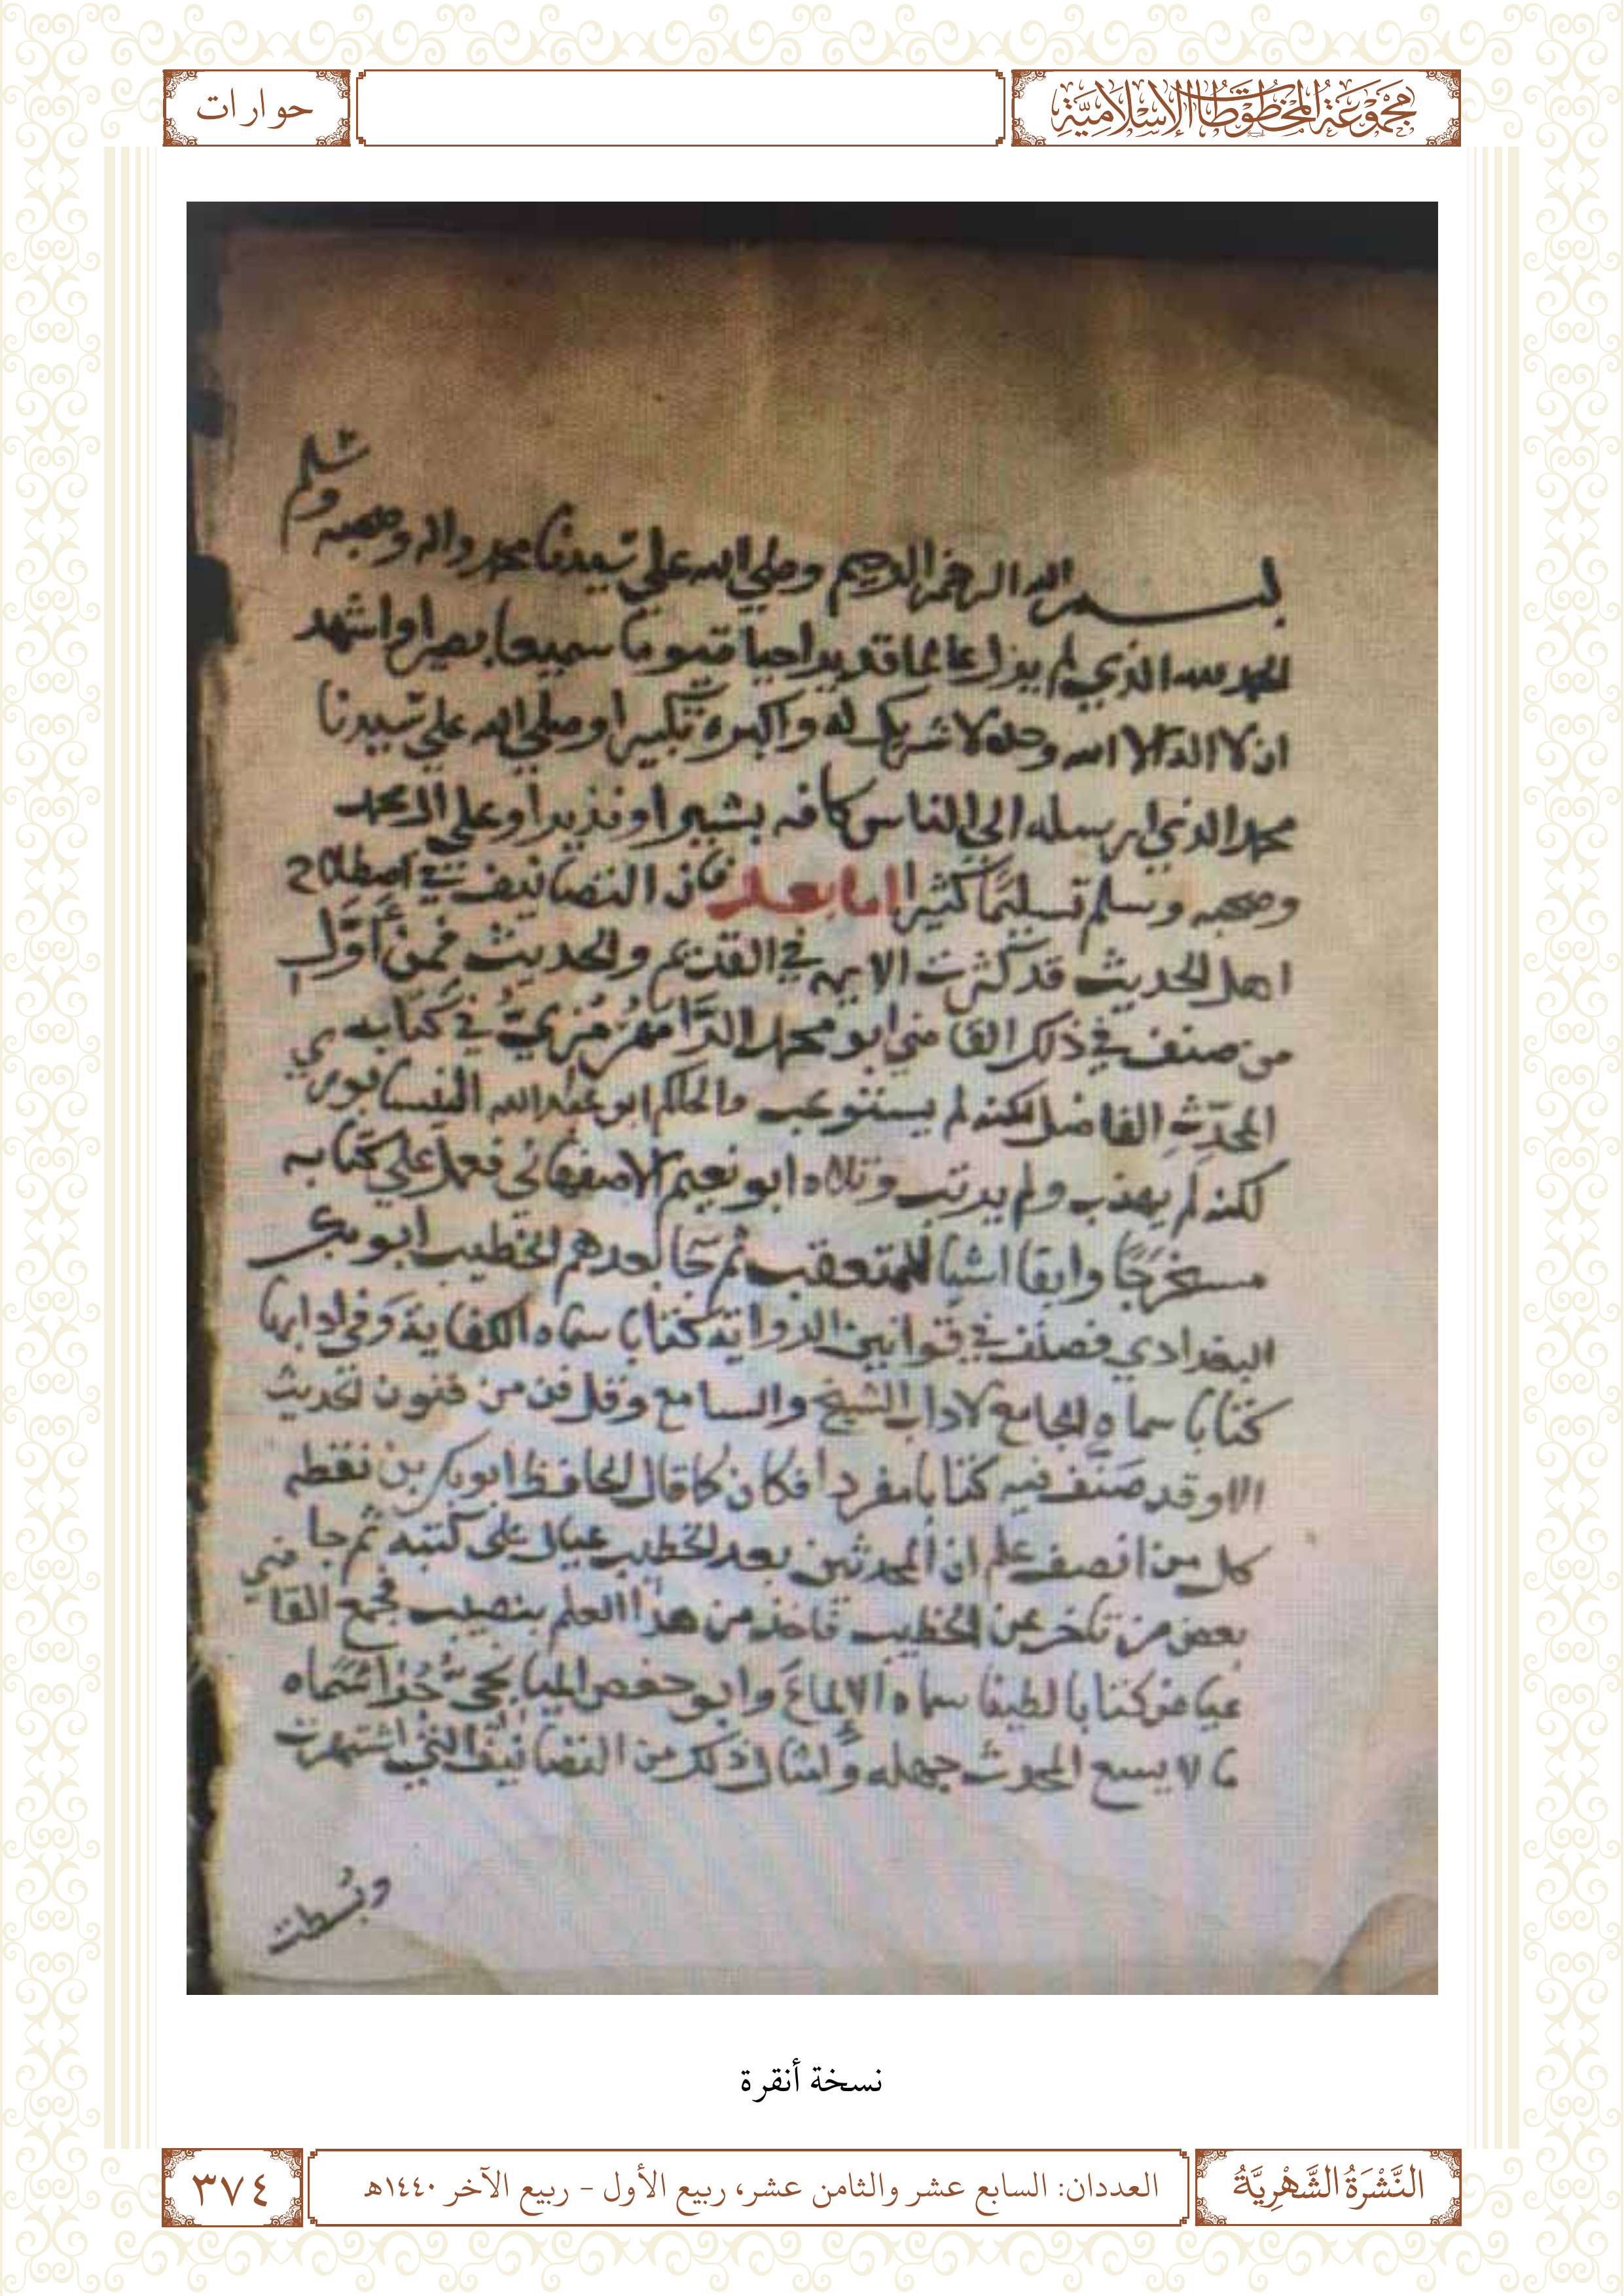 مجموعة المخطوطات الإسلامية
حوارات
وسلم
بسم الله الرحمن الرحيم وصلي الله علي سيدنا محمد واله وصحبه
الحمد لله الذي لم يزل عالما قديرا حيا قيوما سميعا بصيرا واشهد
ان لا اله الا الله وحده لا شريك له واكبره تكبيرا وصلي الله علي سيدنا
محمد الذي ارسله الي الناس كافه بشيرا ونذيرا وعلي ال محمد
وصحبه وسلم تسليمًا كثيرا اما بعد فان التصانيف في اصطلاح
اهل الحديث قد كثرت الايمه في القديم والحديث فمن أوَّل
من صنف في ذلك القاضي ابو محمد الرَّامَهُرْمُزيُّ في كتابه
المحدِّث الفاضل لكنه لم يستوعب والحاكم ابو عبد الله النيسابوري
لكنه لم يهذب ولم يرتب وتلاه ابو نعيم الاصفهاني فعمل علي كتابه
مستخرَجًا وابقا اشيا للمتعقب ثم جا بعدهم الخطيب ابو بكر
البغدادي فصنَّف في قوانين الرواية كتابا سماه الكفاية وَفي ادابها
كتابا سماه الجامع لاداب الشيخ والسامع وقل فن من فنون الحديث
الا وقد صَنَّف فيه كتابا مفرداً فكان كما قال الحافظ ابو بكر بن نقطه
كل من انصف علم ان المحدثين بعد الخطيب عيال على كتبه ثم جا
بعض من تاخر عن الخطيب فاخذ من هذا العلم بنصيب فجمع القاضي
عياض كتابا لطيفا سماه الإلماعَ وابو حفص الميانجي جُزا سَماه
ما لا يسع المحدث جهله وامثال ذلك من التصانيف التي اشتهرت
وبُسطت
نسخة أنقرة
النَّشْرَةُ الشَّهْرِيَّةُ
العددان: السابع عشر والثامن عشر، ربيع الأول - ربيع الآخر ١٤٤٠هـ
٣٧٤